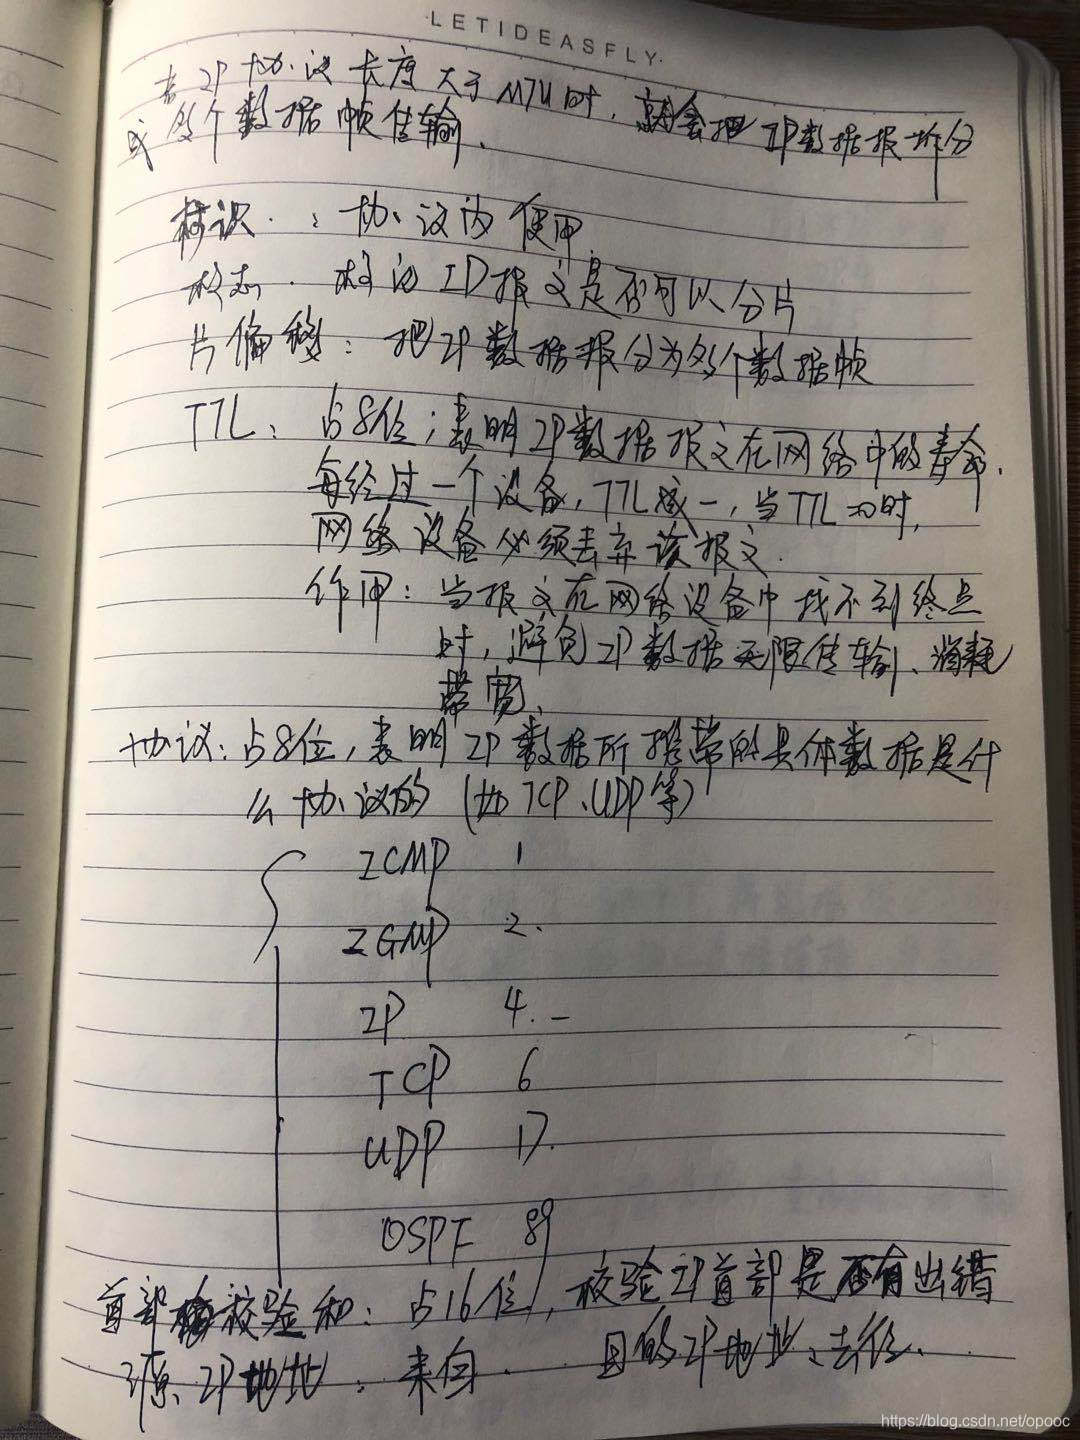 LETIDEASFLY.
若IP协议长度大于MTU时，就会把IP数据报拆分
成多个数据帧传输、
标识：协议内使用
标志.标记IP报文是否可以分片
片偏移：把IP数据报分为多个数据帧
TTL：占8位；表明IP数据报文在网络中的寿命、
每经过一个设备，TTL减一，当TTL=0时，
网络设备必须丢弃该报文.
作用：当报文在网络设备中找不到终点
时，避免IP数据无限传输、消耗
带宽、
协议：占8位，表明IP数据所携带的具体数据是什
么协议的（如TCP、UDP等）
ICMP 1
IGMP 2.
IP 4.
TCP 6
UDP 17.
OSPF 89
首部校验和：占16位，校验IP首部是否有出错
源IP地址：来自. 目的IP地址、去往.
https://blog.csdn.net/opooc